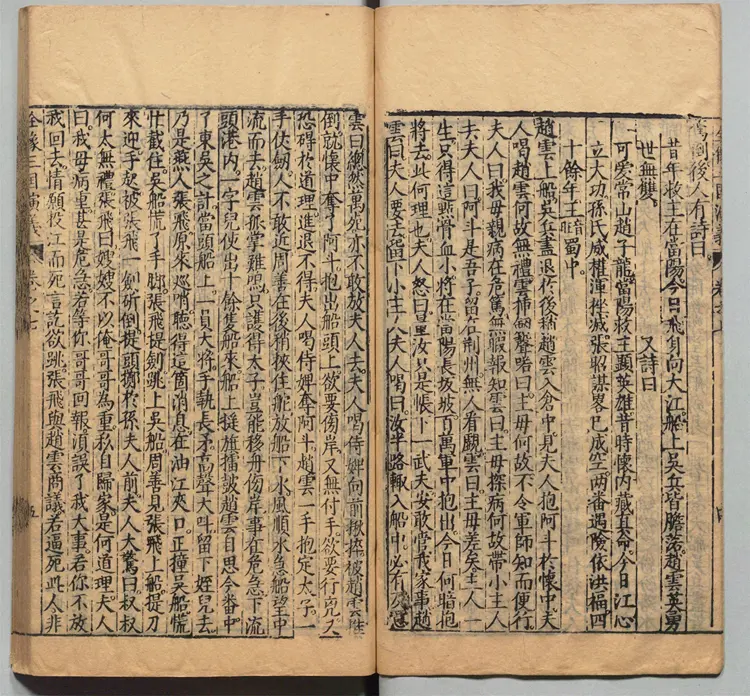 倒後人有詩曰
昔年救主在當陽。今日飛身向大江。船上吳兵皆膽落。趙雲英勇
世無雙。 又詩曰
可愛常山趙子龍。當陽救主顯英雄。昔時懷內藏真命。今日江心
立大功。孫氏威權渾挫滅。張昭謀畧已成空。兩番遇險依洪福。四
十餘年王蜀中。
趙雲上船。吳兵盡退於後稍。趙雲入倉中。見夫人抱阿斗於懷中。夫
人喝趙雲何故無禮。雲插劍聲喏曰。主母何故不令軍師知而便行。
夫人曰。我母親病在危篤。無暇報知。雲曰。主母探病。何故帶小主人
去。夫人曰。阿斗是吾子。留在荊州。無人看覷。雲曰。主母差矣。主人一
生只得這點骨血。小將在當陽長坂坡百萬軍中抱出。今日何暗抱
將去。此何理也。夫人怒曰。量汝只是帳下一武夫。安敢管我家事。趙
雲曰。夫人要去。留下小主人。夫人喝曰。汝半路輙入船中。必有反意
雲曰。縱然萬死。亦不敢放夫人去。夫人喝侍婢向前揪捽。被趙雲推
倒。就懷中奪了阿斗。抱出船頭上。欲要傍岸。又無付手。欲要行凶。又
恐碍於道理。進退不得。夫人喝侍婢奪阿斗。趙雲一手抱定太子。一
手仗劍。人不敢近。周善在後稍挾住舵。放船下水。風順水急。船望中
流而去。趙雲孤掌難鳴。只護得太子。豈能移舟傍岸。事在危急。下流
頭港內。一字兒使出十餘隻船來。船上旌旗擂皷。趙雲自思。今番中
了東吳之計。當頭船上。一員大將。手執長矛。高聲大叫。留下姪兒去。
乃是燕人張飛。原來巡哨聽得這箇消息。在油江夾口。正撞吳船。慌
忙截住。吳船慌了手脚。張飛提劍跳上吳船。周善見張飛上船。提刀
來迎。手起被張飛一劍斫倒。提頭擲於孫夫人前。夫人大驚曰。叔叔
何太無禮。張飛曰。嫂嫂不以俺哥哥為重。私自歸家。是何道理。夫人
曰。我母病重。甚是危急。若等你哥哥回報。須誤了我大事。若你不放
我回去。情願投江而死。言訖欲跳。張飛與趙雲商議。若逼死此人。非
全像三國演義 卷之七 五